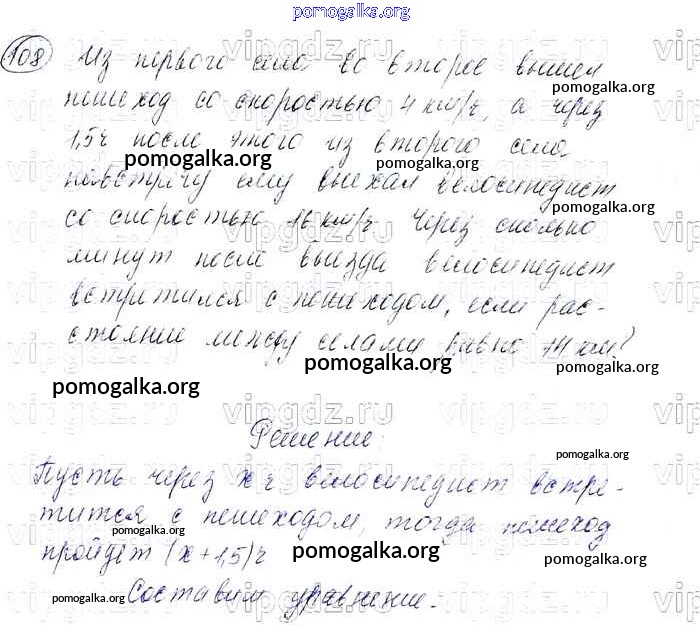 pomogalka.org
108 Из первого села во второе вышел
pomogalka.org
пешеход со скоростью 4 км/ч, а через
1,5 ч после этого из второго села
pomogalka.org pomogalka.org
навстречу ему выехал велосипедист
pomogalka.org
со скоростью 16 км/ч Через сколько
минут после выезда велосипедист
встретился с пешеходом, если рас-
стояние между селами равно 14 км?
pomogalka.org pomogalka.org
pomogalka.org
Решение:
pomogalka.org
Пусть через x ч велосипедист встре-
тится с пешеходом, тогда пешеход
pomogalka.org pomogalka.org
пройдёт (x+1,5) ч
pomogalka.org
Составим уравнение:
pomogalka.org pomogalka.org